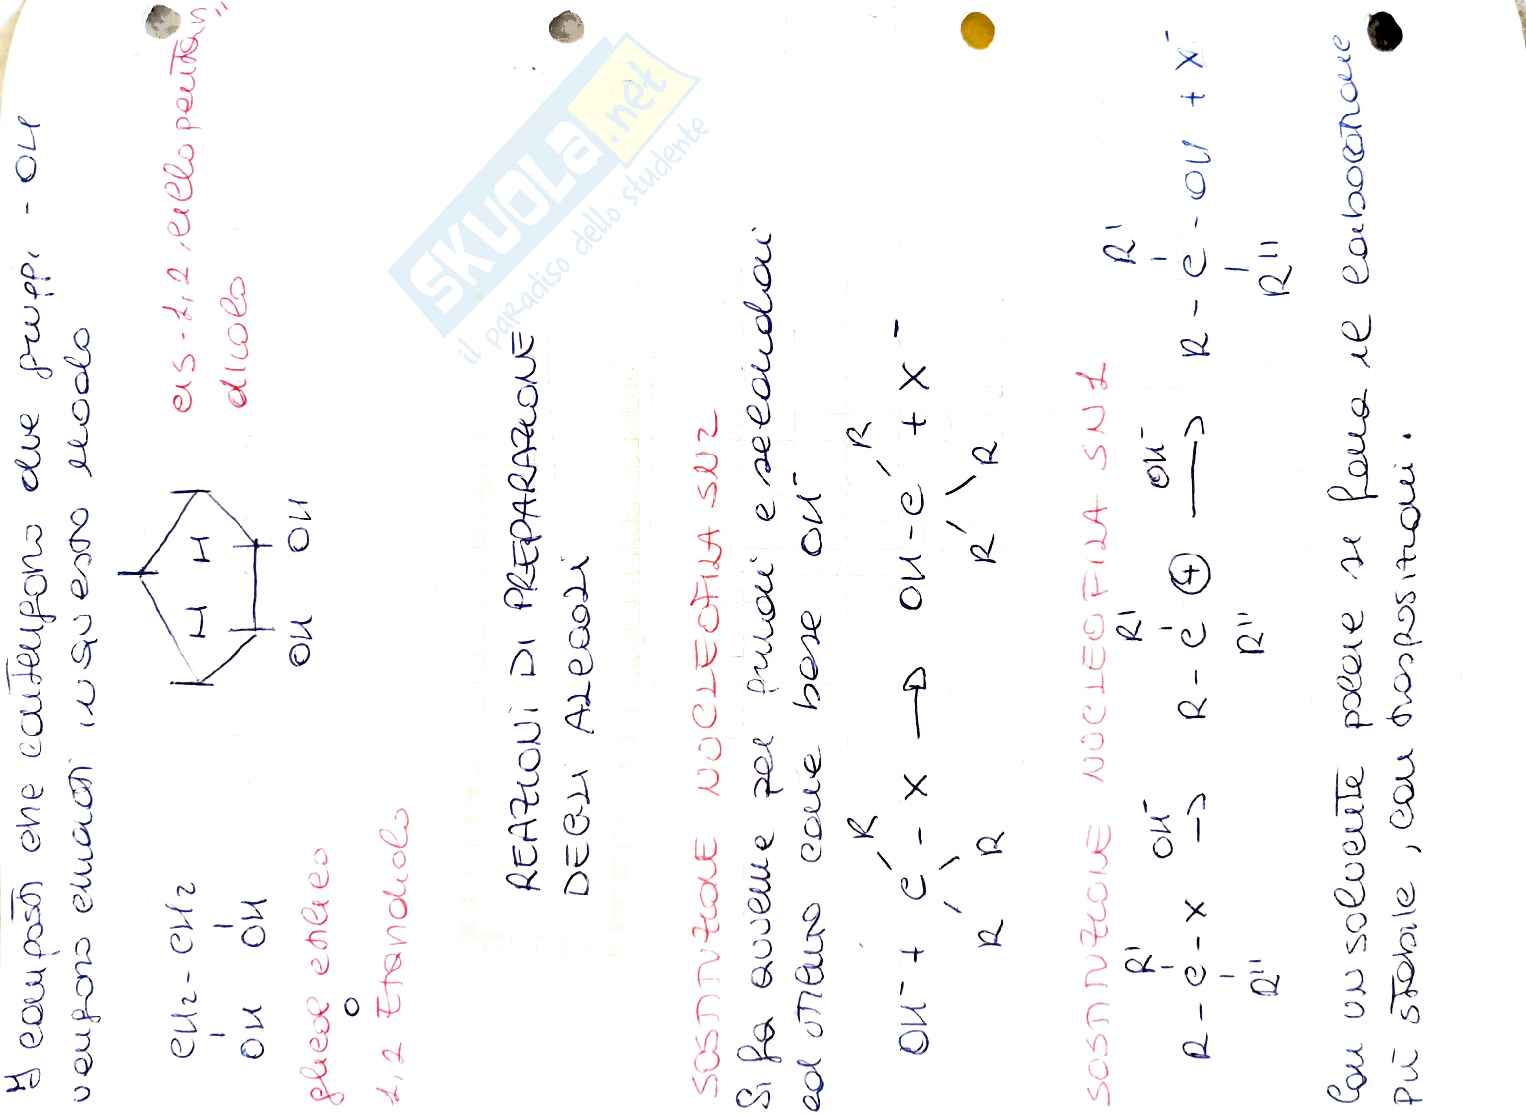 I composti che contengono due gruppi -OH
vengono chiamati in questo modo
CH2 - CH2
OH OH
glicol etilico
o
1,2 Etandiolo
H H
OH OH
cis-1,2,ciclopentan,,
diolo
SKUOLA.net
il paradiso dello studente
REAZIONI DI PREPARAZIONE
DEGLI ALCOOLI
SOSTITUZIONE NUCLEOFILA SN2
Si fa avvenire per primari e secondari
ed otteniamo come base OH⁻
R R
OH⁻ + C - X → OH - C + X⁻
R R R R
SOSTITUZIONE NUCLEOFILA SN1
R' OH⁻ R' OH⁻ R'
R - C - X → R - C ⊕ → R - C - OH + X⁻
R'' R'' R''
Con un solvente polare si forma il carbocatione
più stabile, con trasposizioni.